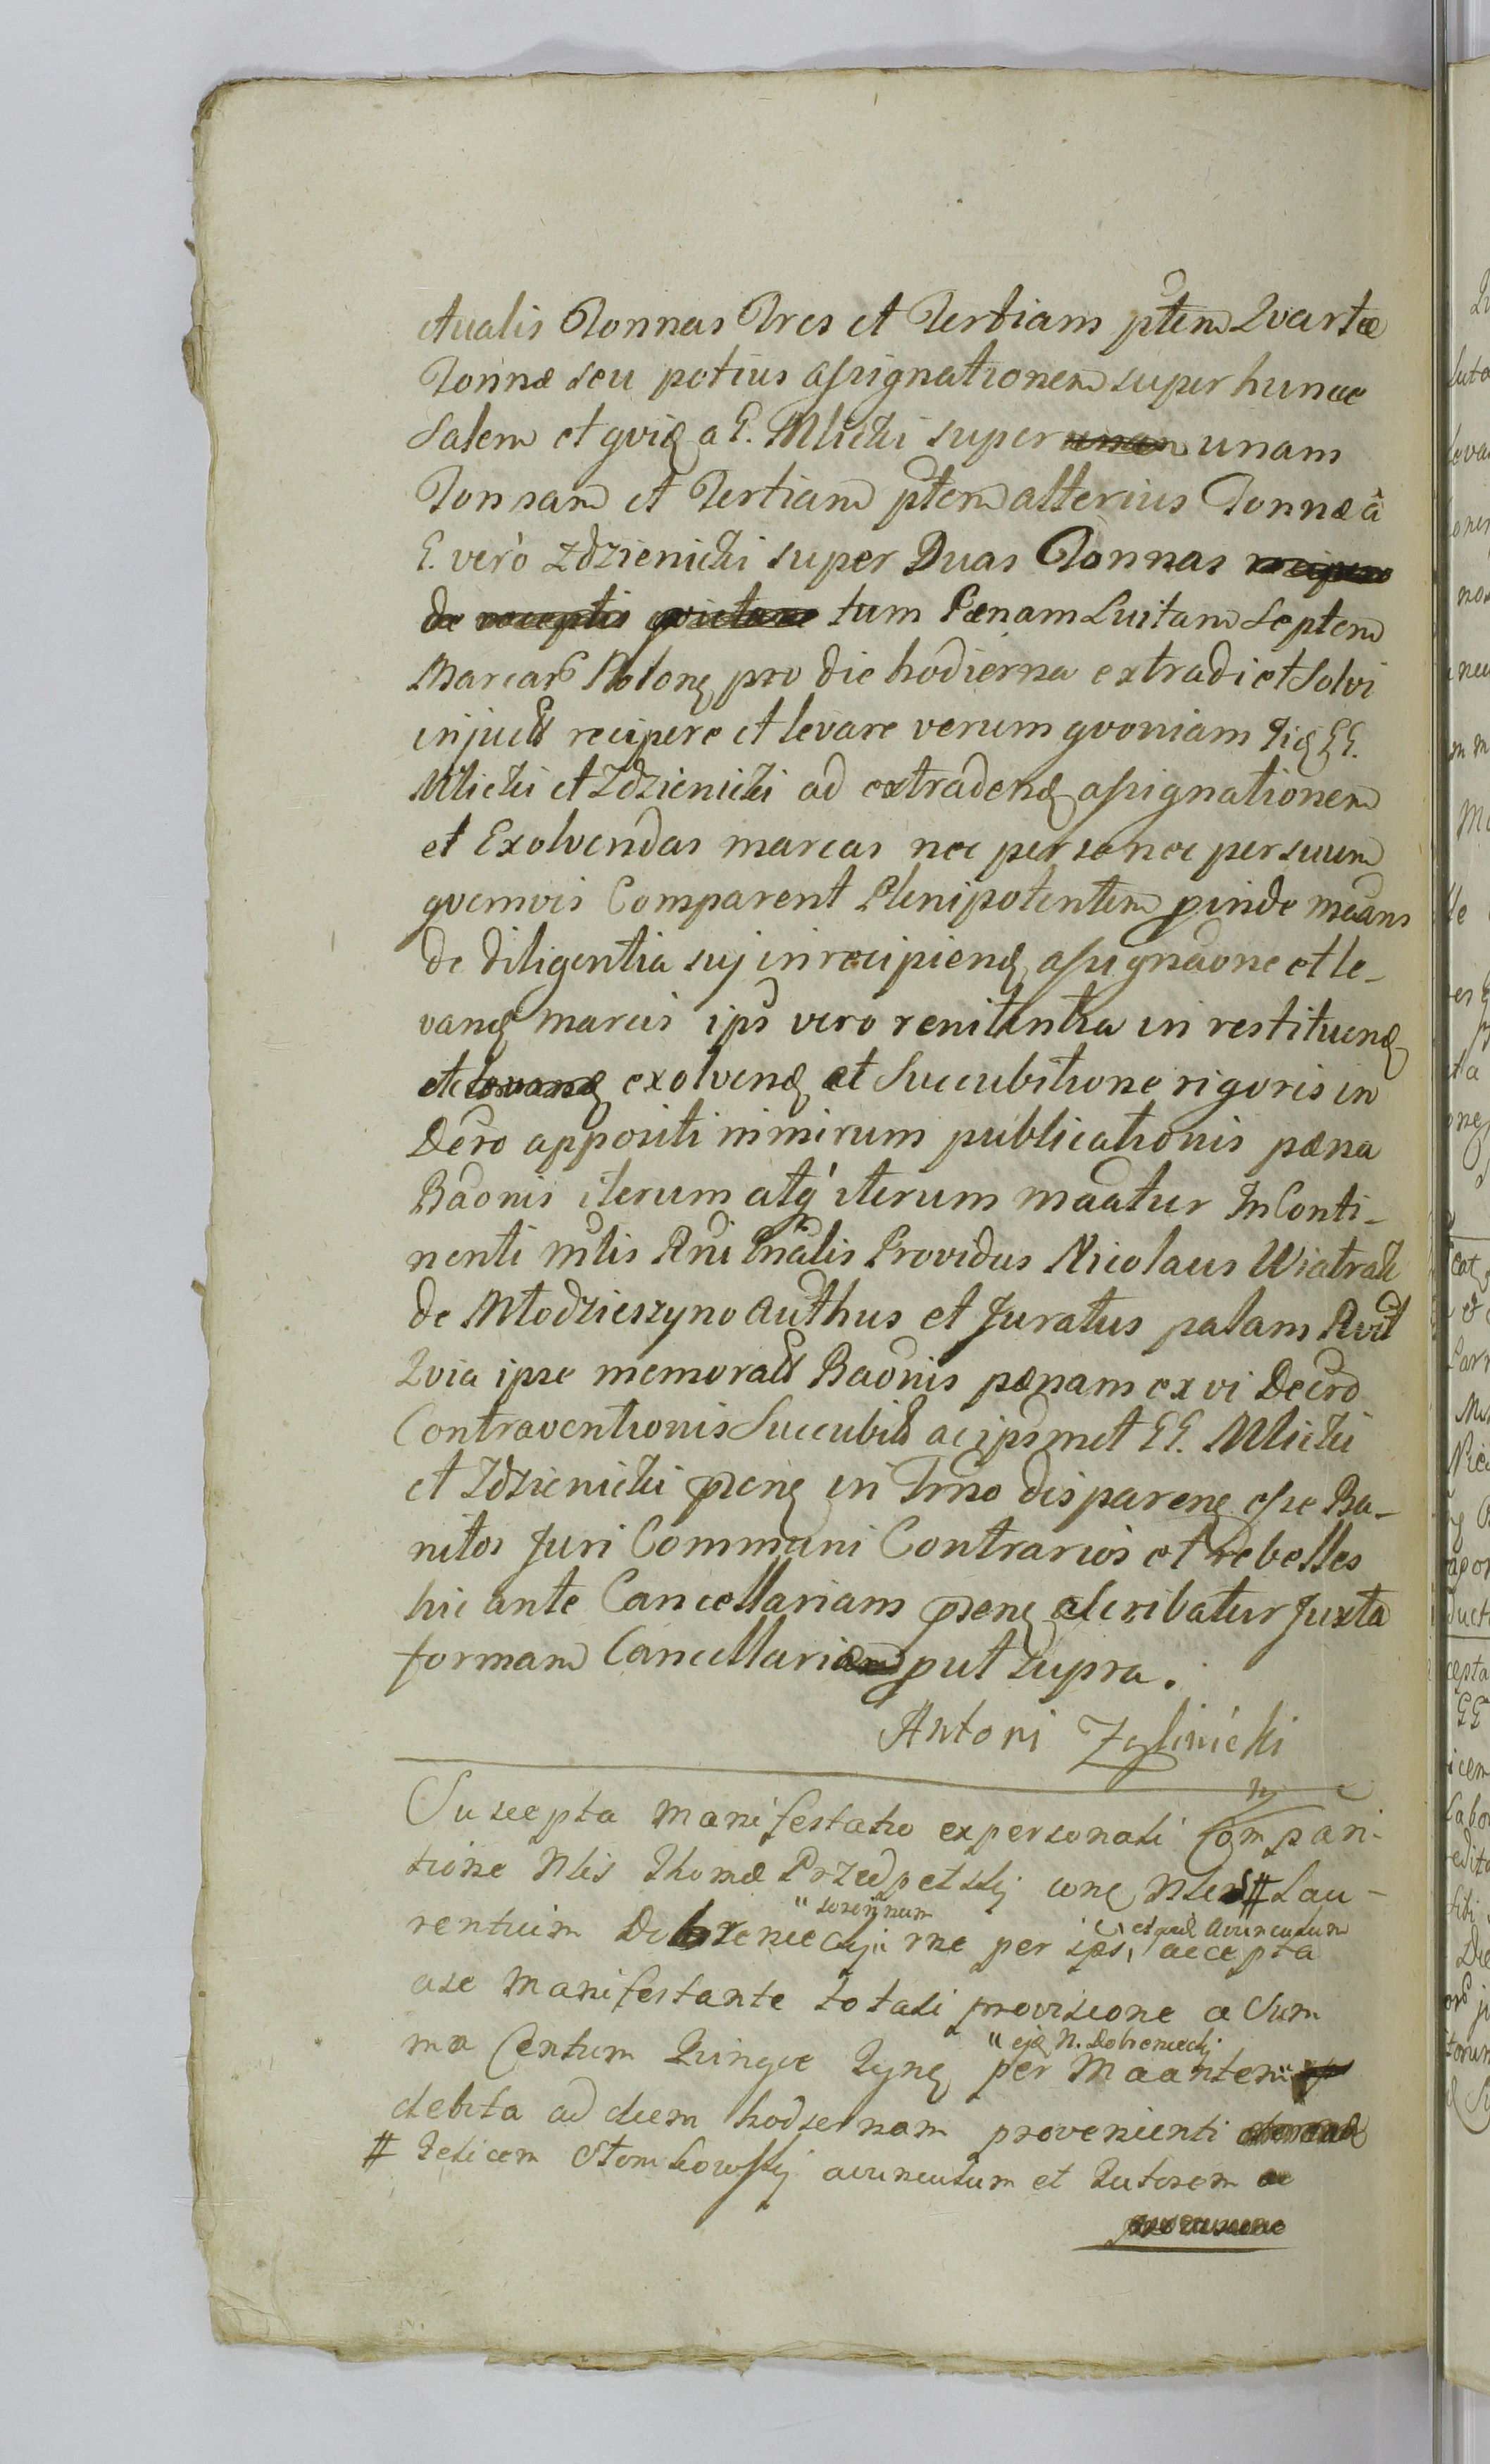 ctualis Tonnas Tres et Tertiam ptem Qvartæ
Tonnæ seu potius assignationem super hunce
Salem et qvid a G. Mlicki super unam unam
Tonnam et Tertiam ptem alterius Tonnæ à
G. verò Zdzienicki super Duas Tonnas recipere
de receptis qvietare tum Pænam Luitam Septem
Marcar Polon pro die hodierna extradi et Solvi
injuctt recipere et levare verum qvoniam GG.
Mlicki et Zdzienicki ad extradend assignationem
et Exolvendas marcas nec per se nec per suum
qvemvis Comparent Plenipotentem pinde maans
de diligentia sui in recipiend assignaone et le-
vand marcis ips vero renitentia in restituend
et levand exolvend et Succubitione rigoris in
Decro appositi nimirum publicationis pæna
Baonis iterum atq iterum maatur In Conti-
nenti Mtlis Rni Gnalis Providus Nicolaus Wiatrak
de Młodzieszyno Authus et Juratus palam Rvit
Qvia ipse memoratt Baonis pænam ex vi Decro
Contraventionis Succubitt ac ipsmet GG. Mlicki
et Zdzienicki psens in Trno disparens esse Ba-
nitos Juri Communi Contrarios et rebelles
hic ante Cancellariam psens ascribatur Juxta
formam Cancellariæ put supra.
Antoni Zglinicki
Suscepta manifestatio ex personali Compari-
tione Nlis Thomæ Przedpełskj cone Nlem # Lau-
" sororinum
rentium Dobrenieckj rne per ips, accepta
et qvid avunculum
a se Manifestante totali provisione a Sum
ma Centum Qvinqve
" ejq N. Dobrenieckj
per Maantem
debita ad diem hodiernam provenienti
# Felicem Stomkowskj avunculum et Tutorem